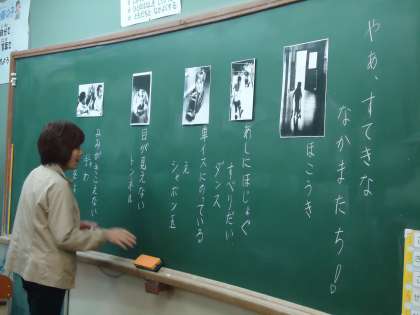 やあ、すてきな
なかまたち!
ほこうき
あしにほじょぐ
すべりだい
ダンス
車イスにのっている
え
シャボン玉
目が見えない
トンネル
みみがきこえない
手わ